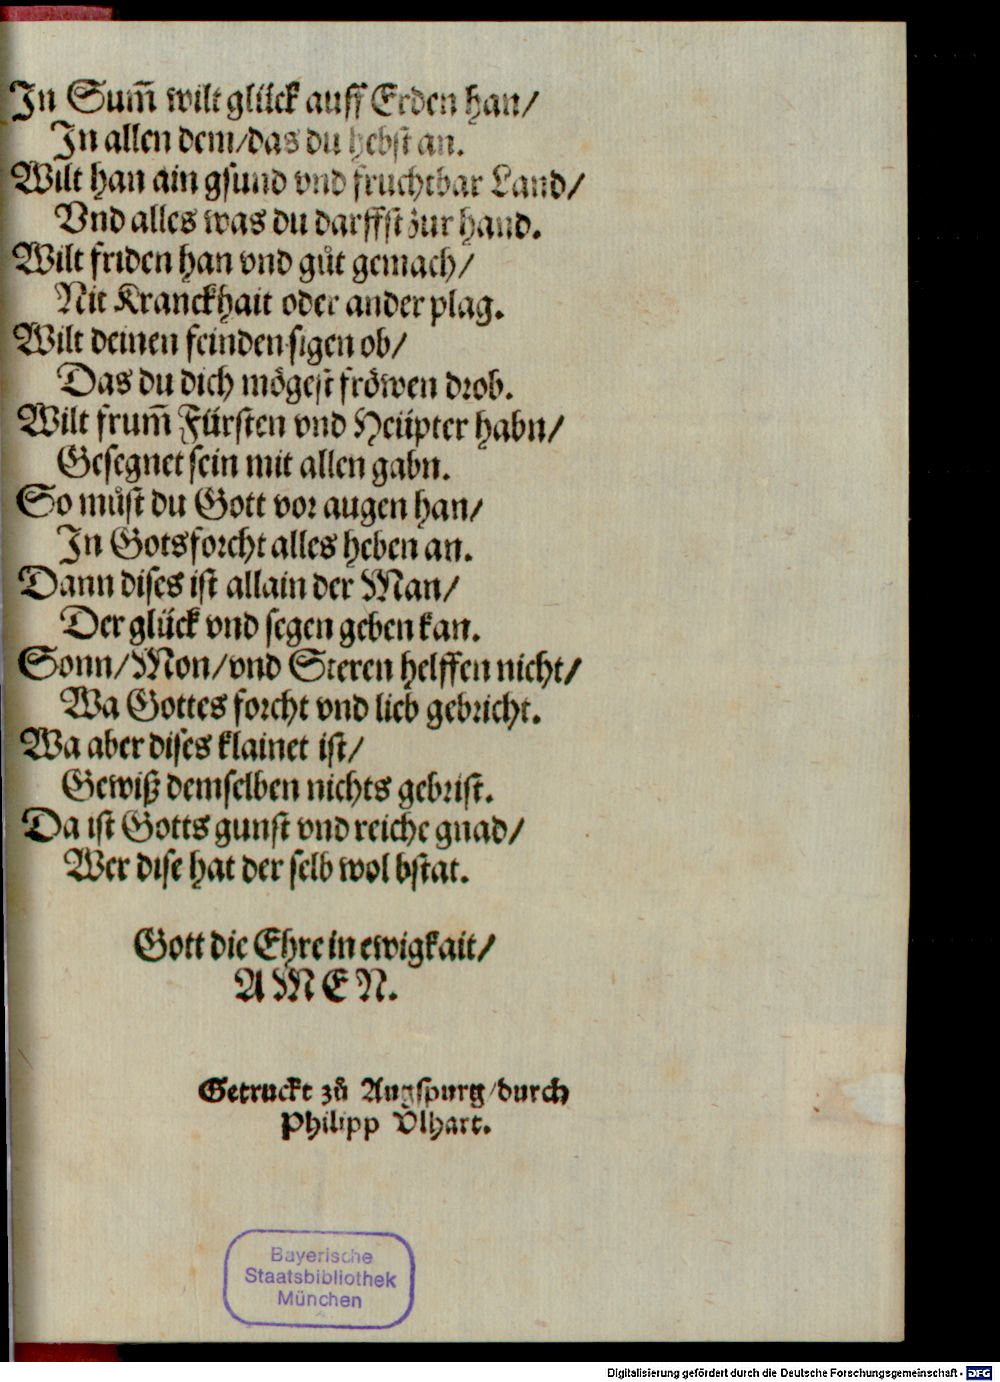 In Sum̄ wilt glück auff Erden han/
In allen dem/das du hebst an.
Wilt han ain gsund vnd fruchtbar Land/
Vnd alles was du darffst zur hand.
Wilt friden han vnd gůt gemach/
Nit Kranckhait oder ander plag.
Wilt deinen feinden sigen ob/
Das du dich mögest fröwen drob.
Wilt frum̄ Fürsten vnd Heüpter habn/
Gesegnet sein mit allen gabn.
So můst du Gott vor augen han/
In Gotsforcht alles heben an.
Dann dises ist allain der Man/
Der glück vnd segen geben kan.
Sonn/Mon/vnd Steren helffen nicht/
Wa Gottes forcht vnd lieb gebricht.
Wa aber dises klainet ist/
Gewiß demselben nichts gebrist.
Da ist Gotts gunst vnd reiche gnad/
Wer dise hat der selb wol bstat.
Gott die Ehre in ewigkait/
AMEN.
Getruckt zů Augspurg/durch
Philipp Vlhart.
Bayerische
Staatsbibliothek
München
Digitalisierung gefördert durch die Deutsche Forschungsgemeinschaft - DFG